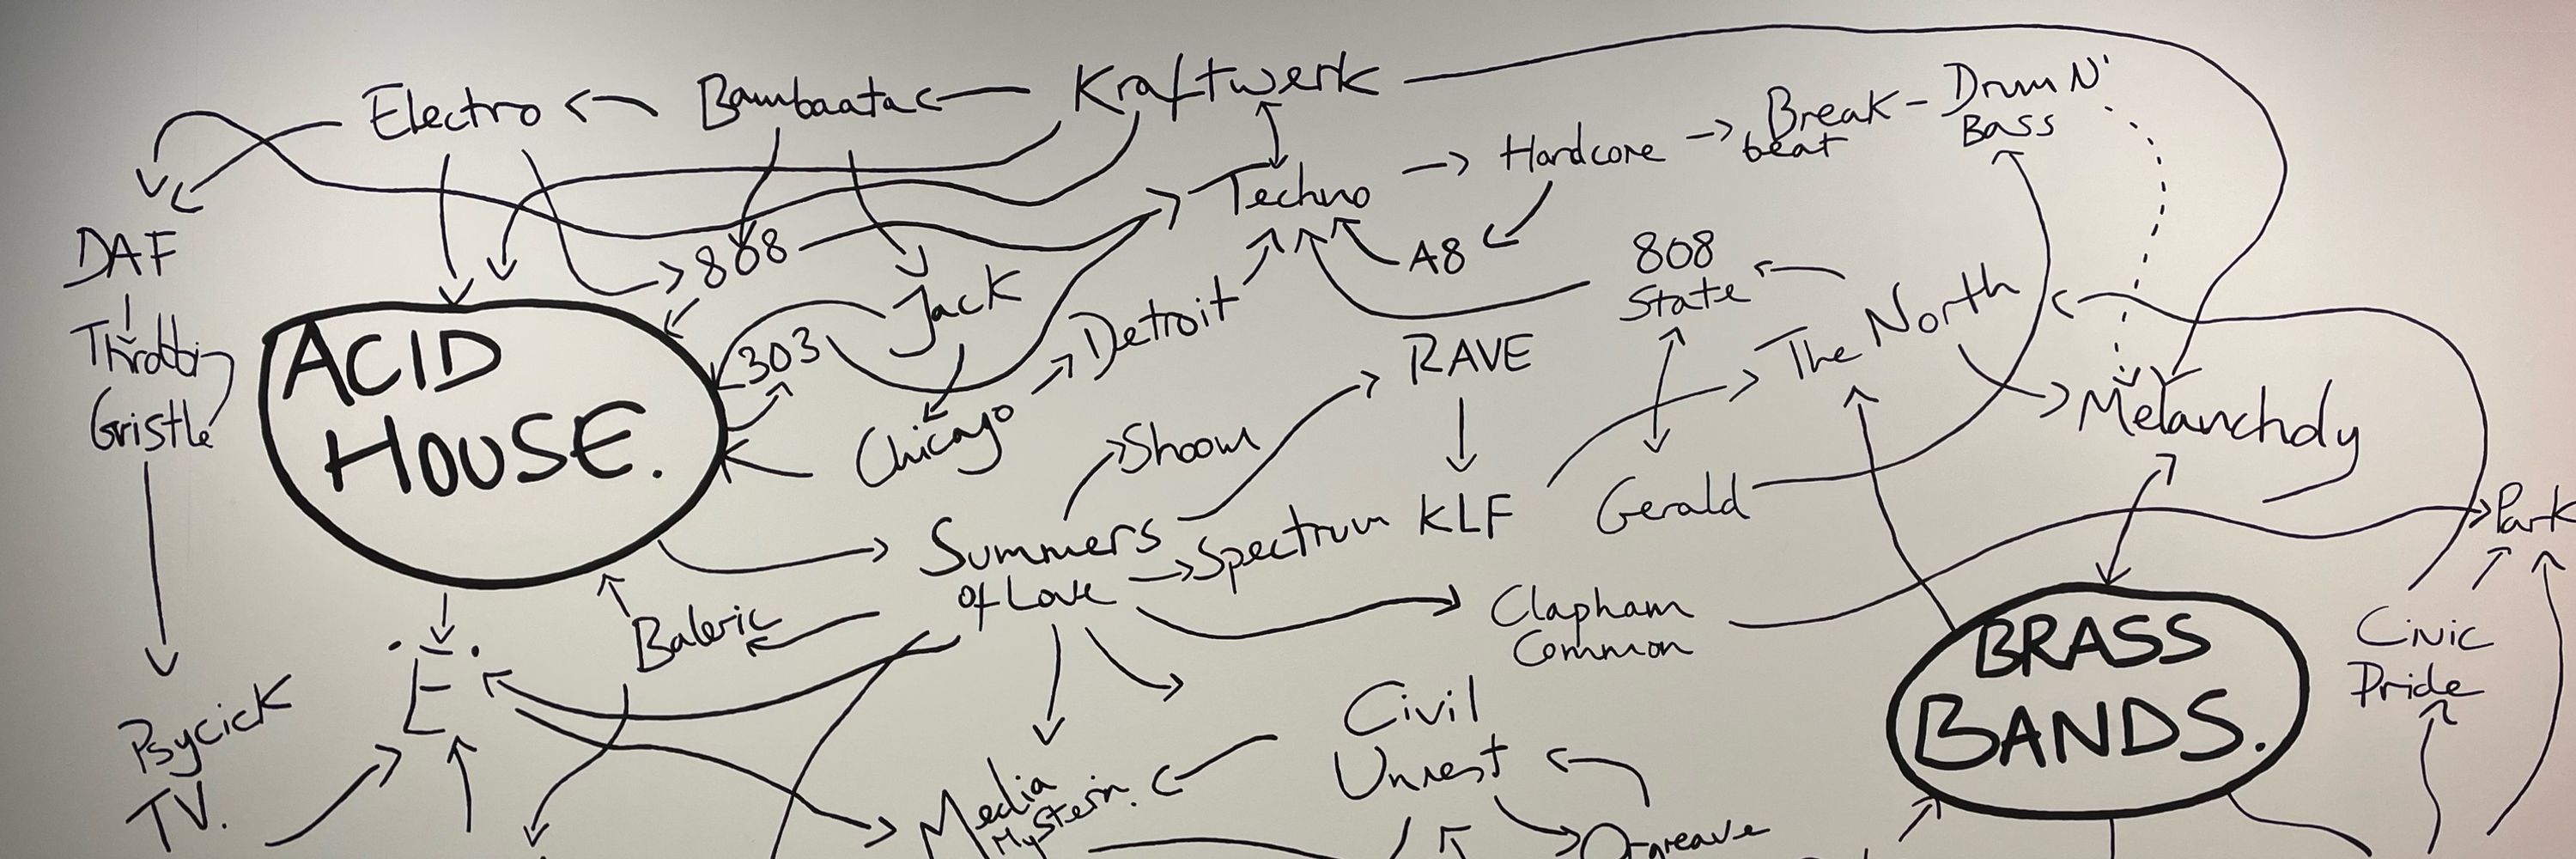 Electro
Bambaata
Kraftwerk
Techno
Hardcore
Break-
beat
Drum N'
Bass
DAF
Throbbing
Gristle
Psycick
TV.
ACID
HOUSE.
808
Jack
303
Chicago
Detroit
A8
808
State
RAVE
The North
Melancholy
Shoom
Summers
of Love
Spectrum
KLF
Gerald
Park
Baleric
Clapham
Common
E
Civil
Unrest
Media
Hysteria.
Orgreave
BRASS
BANDS.
Civic
Pride